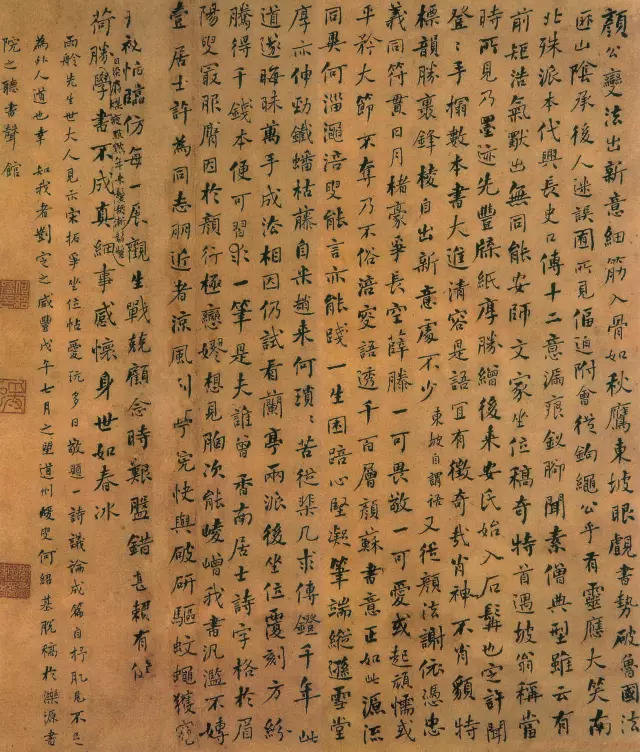 顏公變法出新意細筋入骨如秋鷹東坡眼覷書勢破魯國法
匪山陰承後人迷誤囿所見偪迫附會從鉤繩公乎有靈應大笑南
北殊派本代興長史口傳十二意漏痕釵腳聞素僧典型雖云有
前矩浩氣獸出無同能安師文家坐位稿奇特首遇坡翁稱當
時所見乃墨迹先豐牋紙摩勝繒後來安氏始入石也定許聞
登登手搨數本書大進清容是語宜有徵奇哉肖神不肖貌特
標韻勝裹鋒棱自出新意處不少東坡自謂語又從顏法謝依憑忠
義同符貫日月楮豪爭長空薛滕一可畏敬一可愛或起頑懦或
平矜大節不奪乃不俗涪叟語透千百層顏蘇書意正如此源流
同異何淄澠涪叟能言亦能踐一生困踣心堅凝筆端縱遜雪堂
厚亦伸勁鐵蟠枯藤自米趙來何瑣瑣苦從棐几求傳鐙千年此
道遂晦昧萬手成沿相因仍試看蘭亭兩派後坐位覆刻方紛
騰得千錢本便可習求一筆是夫誰曾香南居士詩字格於眉
陽叟最服膺因於顏行極戀嫪想見胸次能崚嶒我書汎濫不專
壹居士許為同志朋近者涼風快與破硏驅蚊蠅玃
怯臨仿每一展觀生戰兢顧念時艱盤錯甚賴有
荷勝學書不成真細事感懷身世如春冰
雨舲先生世大人見示宋拓爭坐位帖愛玩多日敬題一詩議論成篇自抒肊見不足
為外人道也幸如我者劉定之咸豐戊午七月之望道州蝯叟何紹基脫稿於濼源書
院之聽書聲館